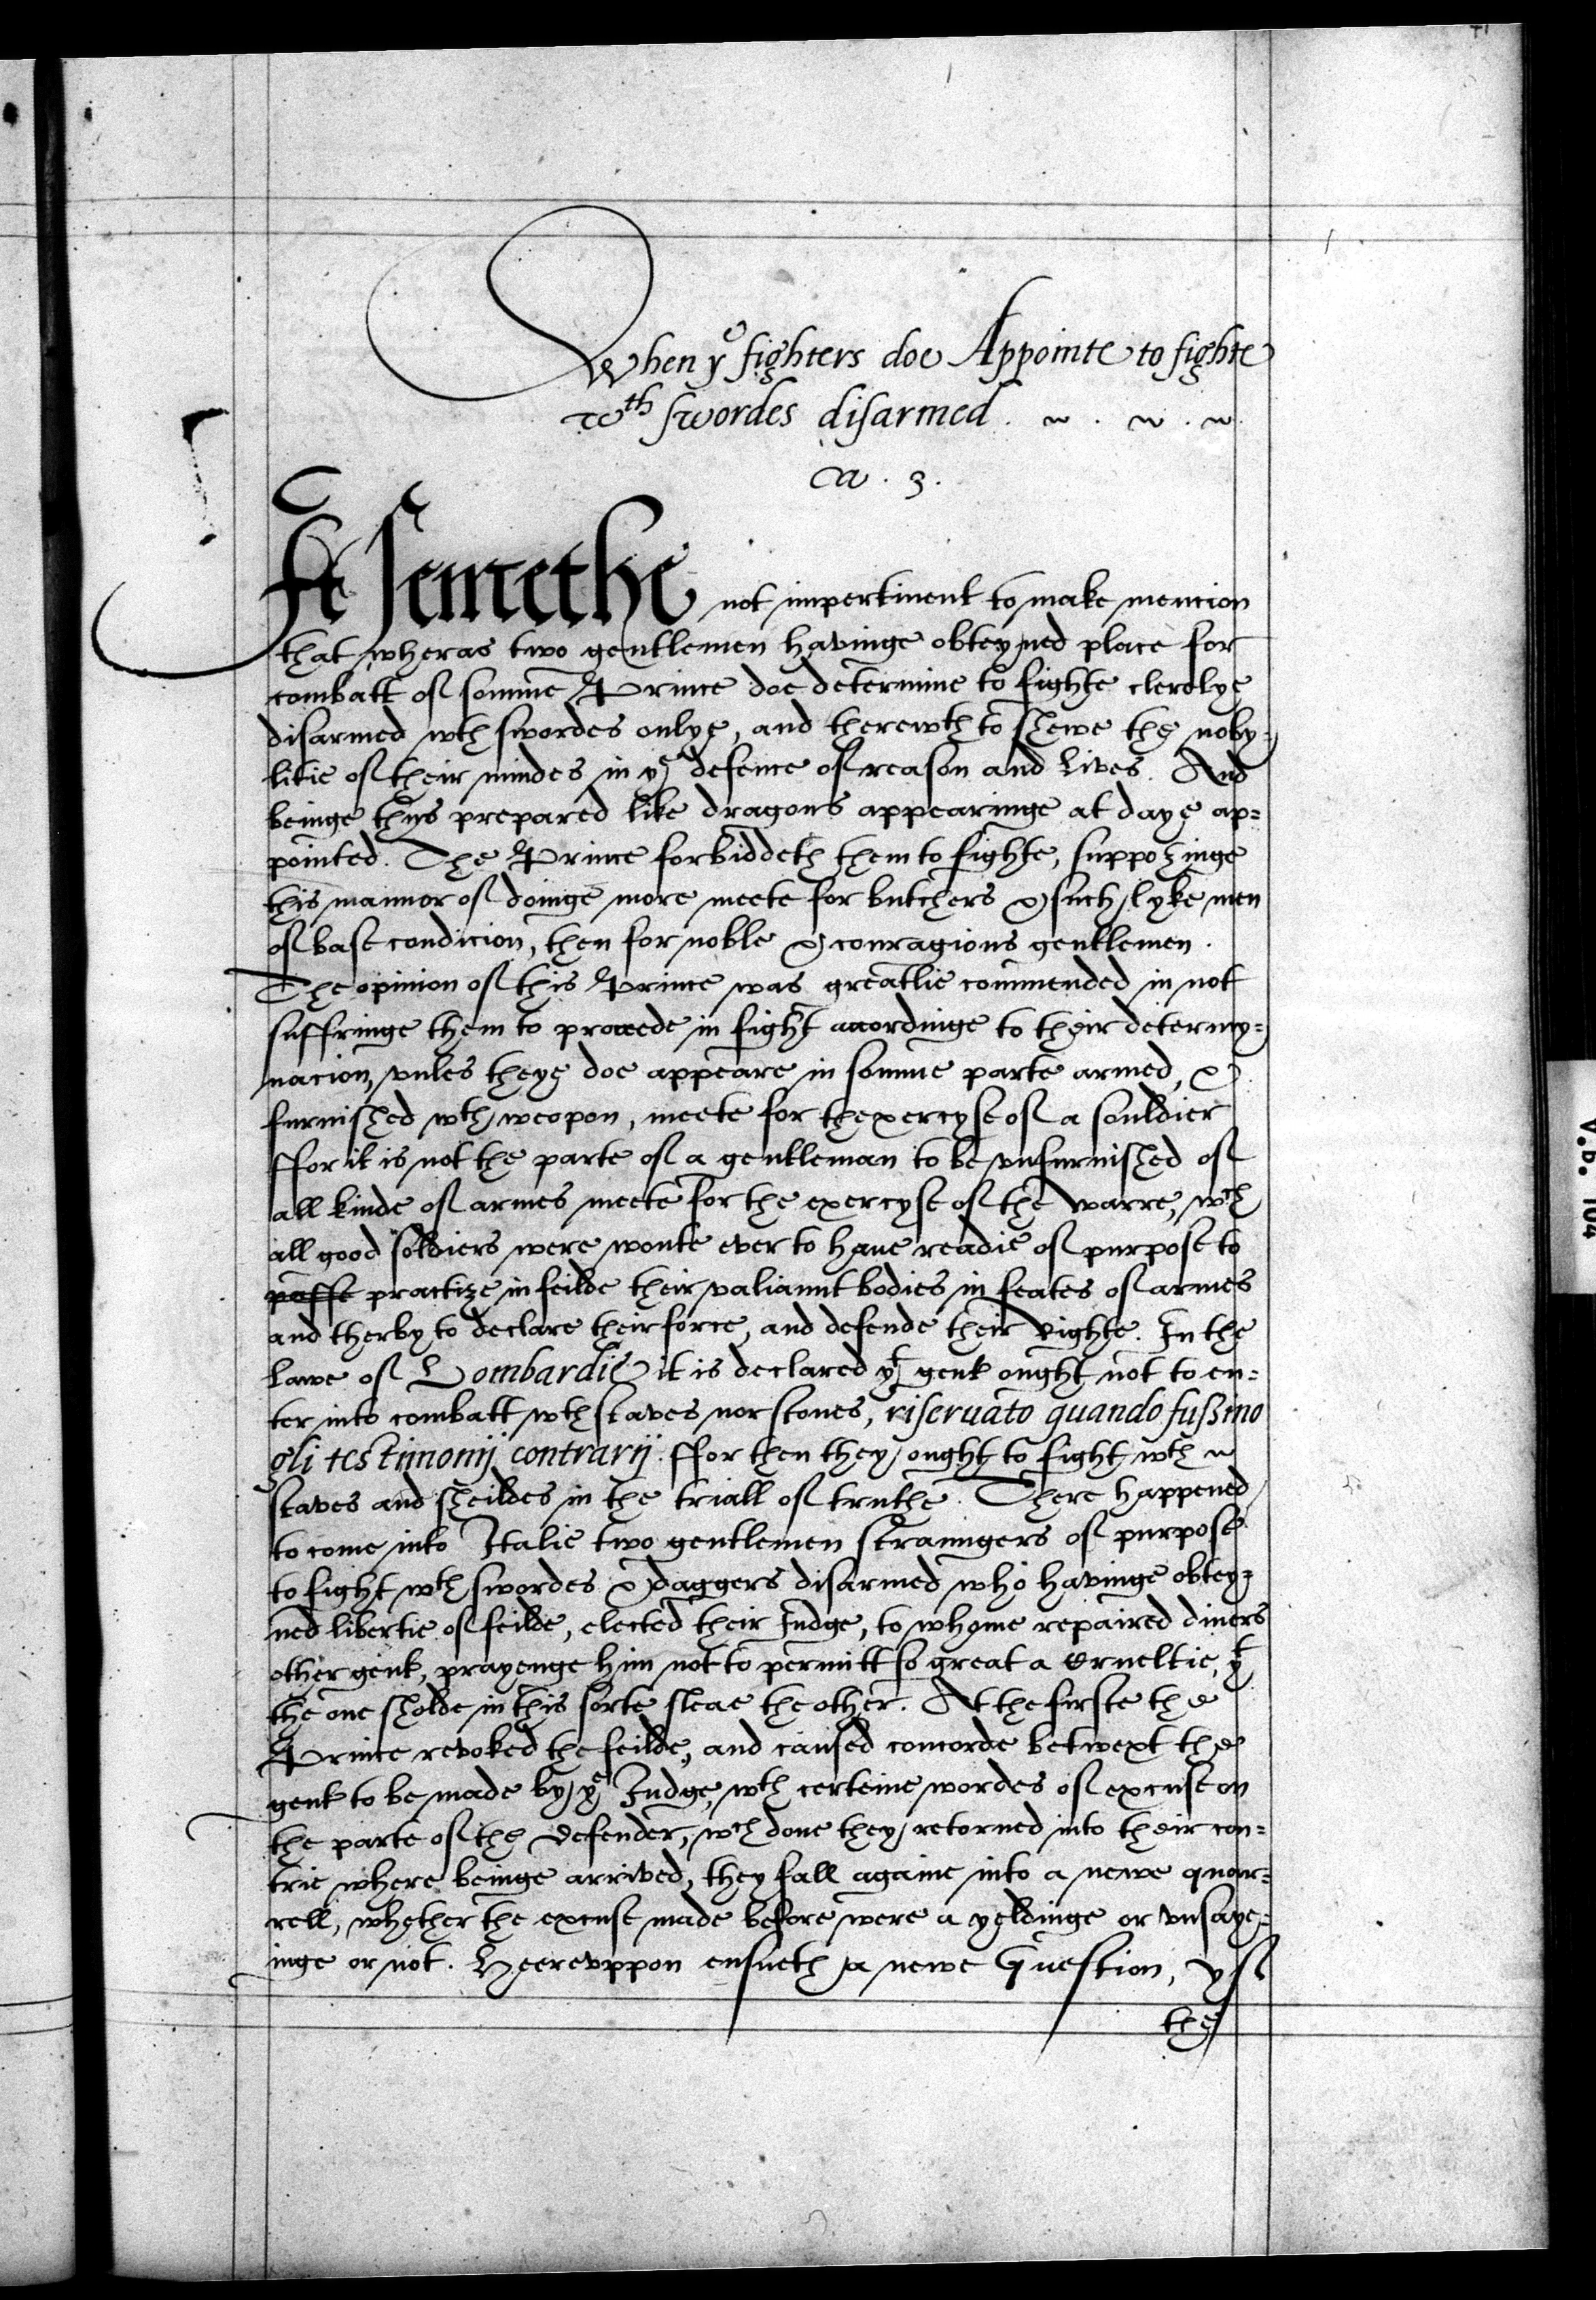 When yͤ fighters doe Appointe to fighte
wᵗʰ swordes disarmed.
Ca. 3.
It semethe not impertinent to make mencion
that wheras two gentlemen havinge obteyned place for
combatt of somme Prince doe determine to fighte clerelye
disarmed wth swordes onlye, and therewth to shewe the noby=
litie of their mindes in yͤ defence of reason and lives. And
beinge thus prepared like dragons appearinge at daye ap=
pointed. The Prince forbiddeth them to fighte, supposinge
this mannor of doinge more meete for butchers & such lyke men
of base condicion, then for noble & couragious gentlemen.
The opinion of this Prince was greatlie commended in not
suffringe them to proceede in fight accordinge to their determy=
nacion, vnles theye doe appeare in somme parte armed, &
furnished wth weopon, meete for thexercyse of a souldier
ffor it is not the parte of a gentleman to be vnfurnished of
all kinde of armes meete for the exercyse of the warre, wᶜh
all good soldiers were wonte ever to haue readie of purpose to
passe practize in feilde their valiaunt bodies in feates of armes
and therby to declare their force, and defende their Righte. In the
Lawe of Lombardie it is declared yᵗ gent ought not to en=
ter into combatt wth staves nor stones, riseruato quando fussino
gli testimonij contrarij. ffor then they ought to fight wth
staves and sheildes in the triall of truthe. There happened
to come into Italie two gentlemen straungers of purpose
to fight wth swordes & daggers disarmed who havinge obtey=
ned libertie of feilde, elected their Judge, to whome repaired diuers
other gent, prayenge him not to permitt so great a Crueltie, yᵗ
the one sholde in this sorte sleae the other. At the firste the
Prince revoked the feilde, and caused concorde betwext the
gent to be made by yͤ Judge, wth certeine wordes of excuse on
the parte of the defender, wᶜh done they retorned into their con=
trie where beinge arrived, they fall againe into a newe quar=
rell, whether the excuse made before were a yeldinge or vnsaye=
inge or not. Heerevppon ensueth a newe Question, yf
the
V.b. 104